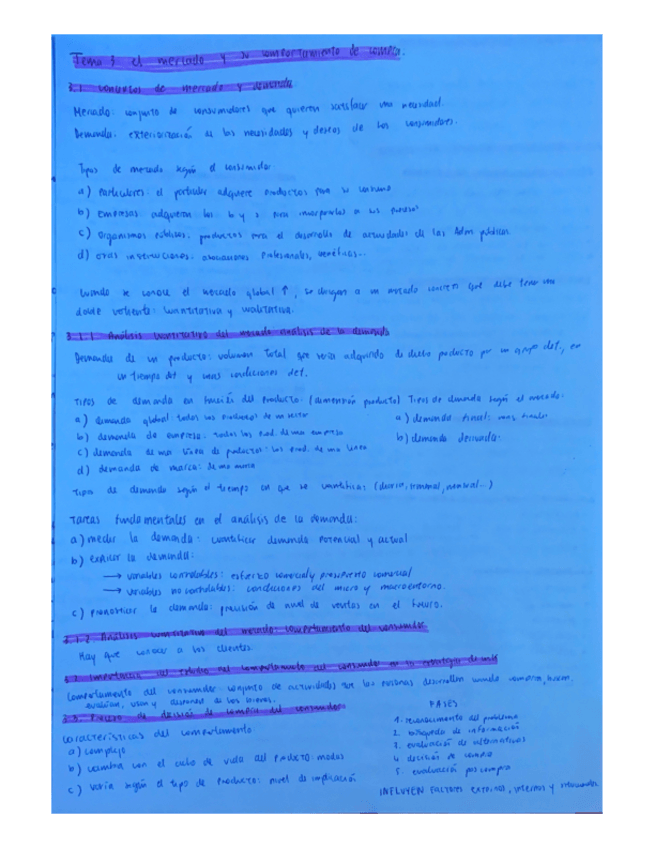 Tema 3 el mercado y su comportamiento de compra.
3.1 conceptos de mercado y demanda
Mercado: conjunto de consumidores que quieren satisfacer una necesidad.
Demanda: exteriorización de las necesidades y deseos de los consumidores.
Tipos de mercado según el consumidor:
a) Particulares: el particular adquiere productos para su consumo
b) empresas adquieren los b y s para incorporarlos a sus procesos
c) Organismos públicos: productos para el desarrollo de actividades de las Adm públicas.
d) otras instituciones: asociaciones profesionales, benéficas...
Cuando se conoce el mercado global ↑, se dirigen a un mercado concreto que debe tener una
doble vertiente: cuantitativa y cualitativa.
3.1.1 Análisis cuantitativo del mercado análisis de la demanda
Demanda de un producto: volumen total que sería adquirido de dicho producto por un grupo det., en
un tiempo det y unas condiciones det.
Tipos de demanda en función del producto: (dimensión producto) Tipos de demanda según el mercado:
a) demanda global todos los productos de un sector
a) demanda final:
b) demanda de empresa: todos los prod. de una empresa
b) demanda derivada:
c) demanda de una línea de productos: los prod. de una línea
d) demanda de marca: de una marca
Tipos de demanda según el tiempo en que se cuantifica: (diaria, semanal, mensual...)
Tareas fundamentales en el análisis de la demanda:
a) medir la demanda: cuantificar demanda potencial y actual
b) explicar la demanda:
→ variables controlables: esfuerzo comercial y presupuesto comercial
→ variables no controlables: condiciones del micro y macroentorno.
c) pronosticar la demanda: previsión de nivel de ventas en el futuro.
3.1.2 Análisis del mercado: comportamiento del consumidor
Hay que conocer a los clientes.
Importancia del estudio del comportamiento del consumidor en la estrategia de
Comportamiento del consumidor: conjunto de actividades que las personas desarrollan cuando compran, buscan,
evalúan, usan y de los bienes.
3.3 Proceso de decisión de compra del consumidor
FASES
Características del comportamiento
1. reconocimiento del problema
2. búsqueda de información
a) complejo
3. evaluación de alternativas
b) cambia con el ciclo de vida del producto: modas
4. decisión de compra
c) varía según el tipo de producto: nivel de implicación
5. evaluación pos compra
INFLUYEN factores externos, internos y